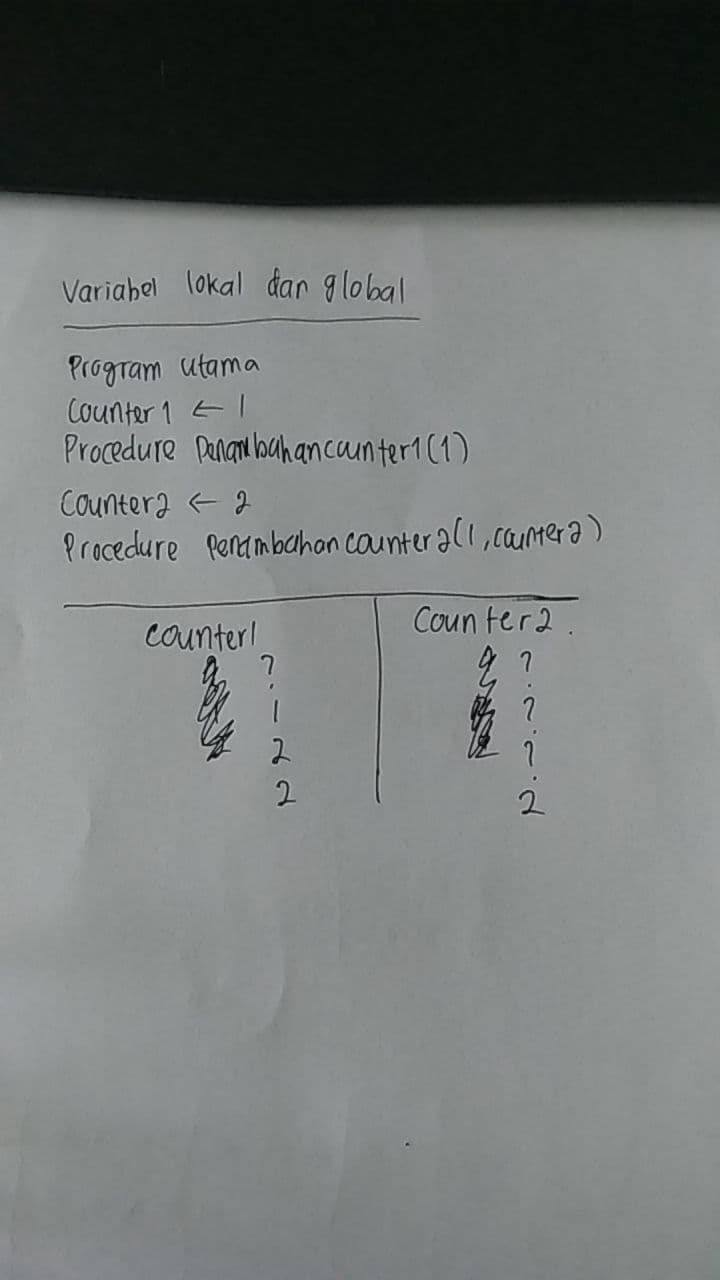 Variabel lokal dan global
Program utama
Counter 1 ← 1
Procedure Penambahancounter1(1)
Counter2 ← 2
Procedure Penambahan counter2(1, counter2)
counter1
?
1
2
2
Counter2.
?
?
?
2